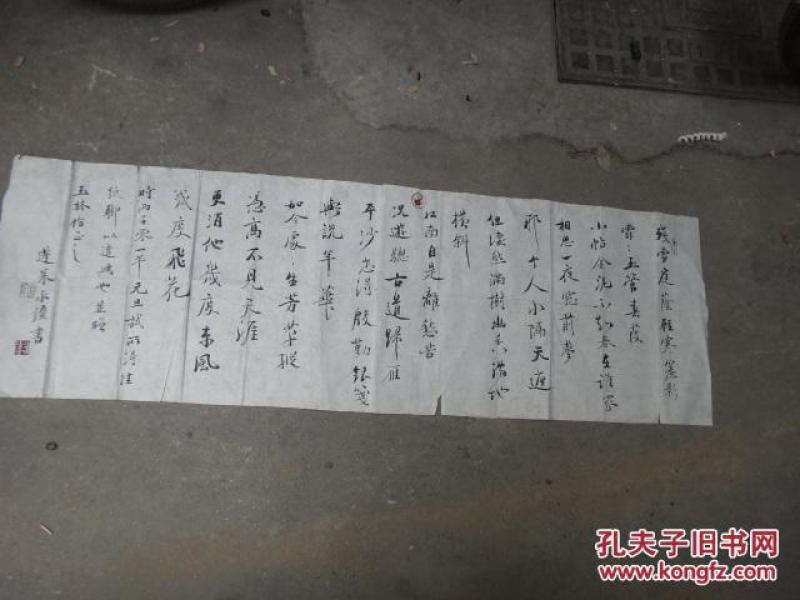 殘雪庭蔭輕寒簾影
霏〻玉管春葭
小帖金泥不知春在誰家
相思一夜窗前夢
个人水隔天遮
但凄然滿樹幽香滿地
橫斜
江南自是離愁苦
況遊驄古道歸雁
平沙怎得殷勤銀箋
與說年華
如今處〻生芳草縱
憑高不見天涯
更消他幾度東風
幾度飛花
時零一年元旦試所得佳
紙聊以遣興也並贈
玉林指正之
蓬萊永書
孔夫子旧书网
www.kongfz.com